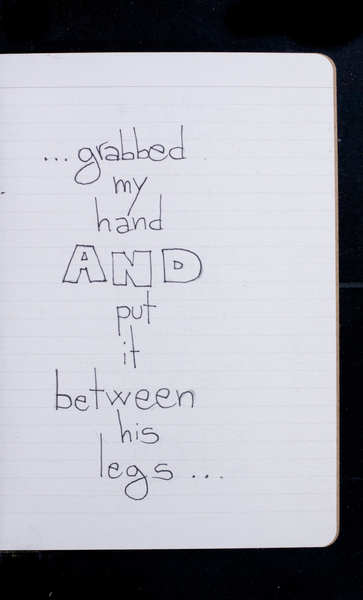 ...grabbed
my
hand
AND
put
it
between
his
legs...